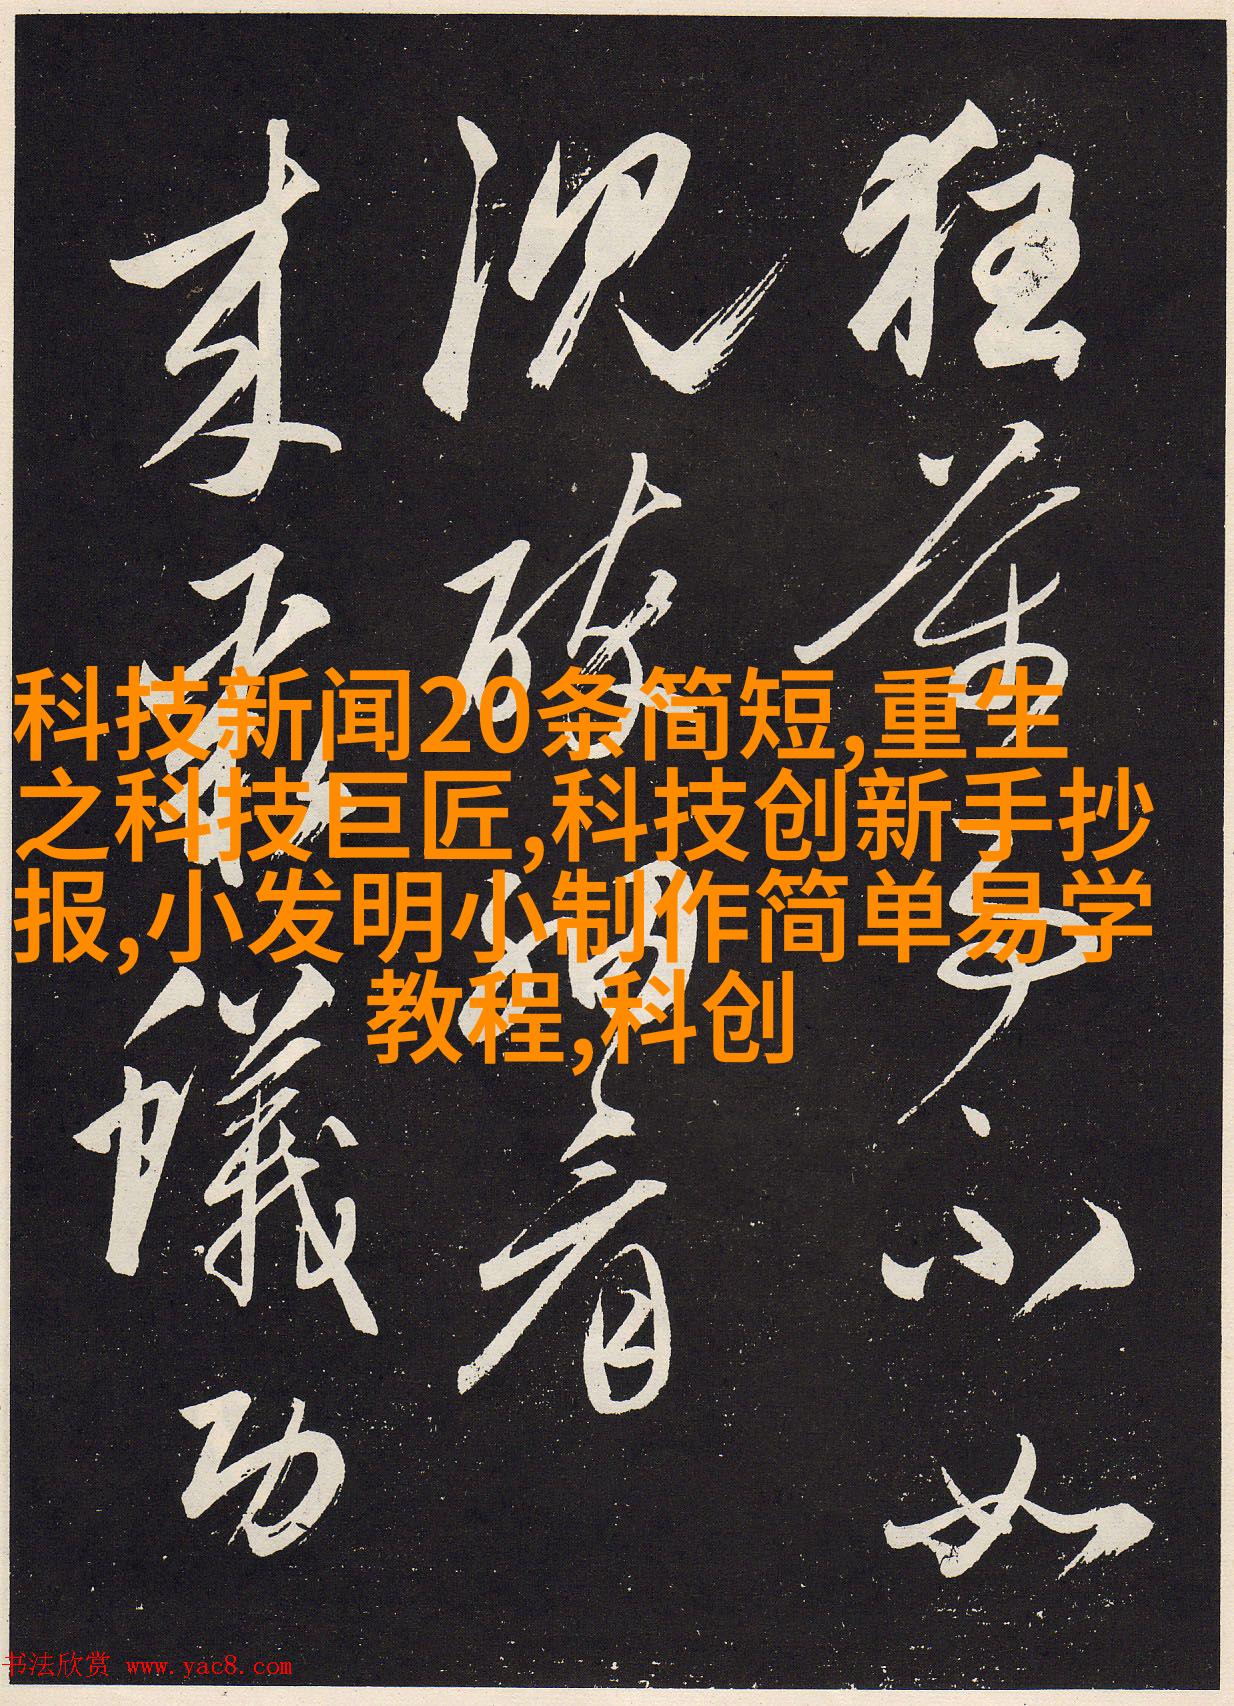 狂不如
况看
来功
科技新闻20条简短,重生
之科技巨匠,科技创新手抄
报,小发明小制作简单易学
教程,科创
书法欣赏 www.yac8.com